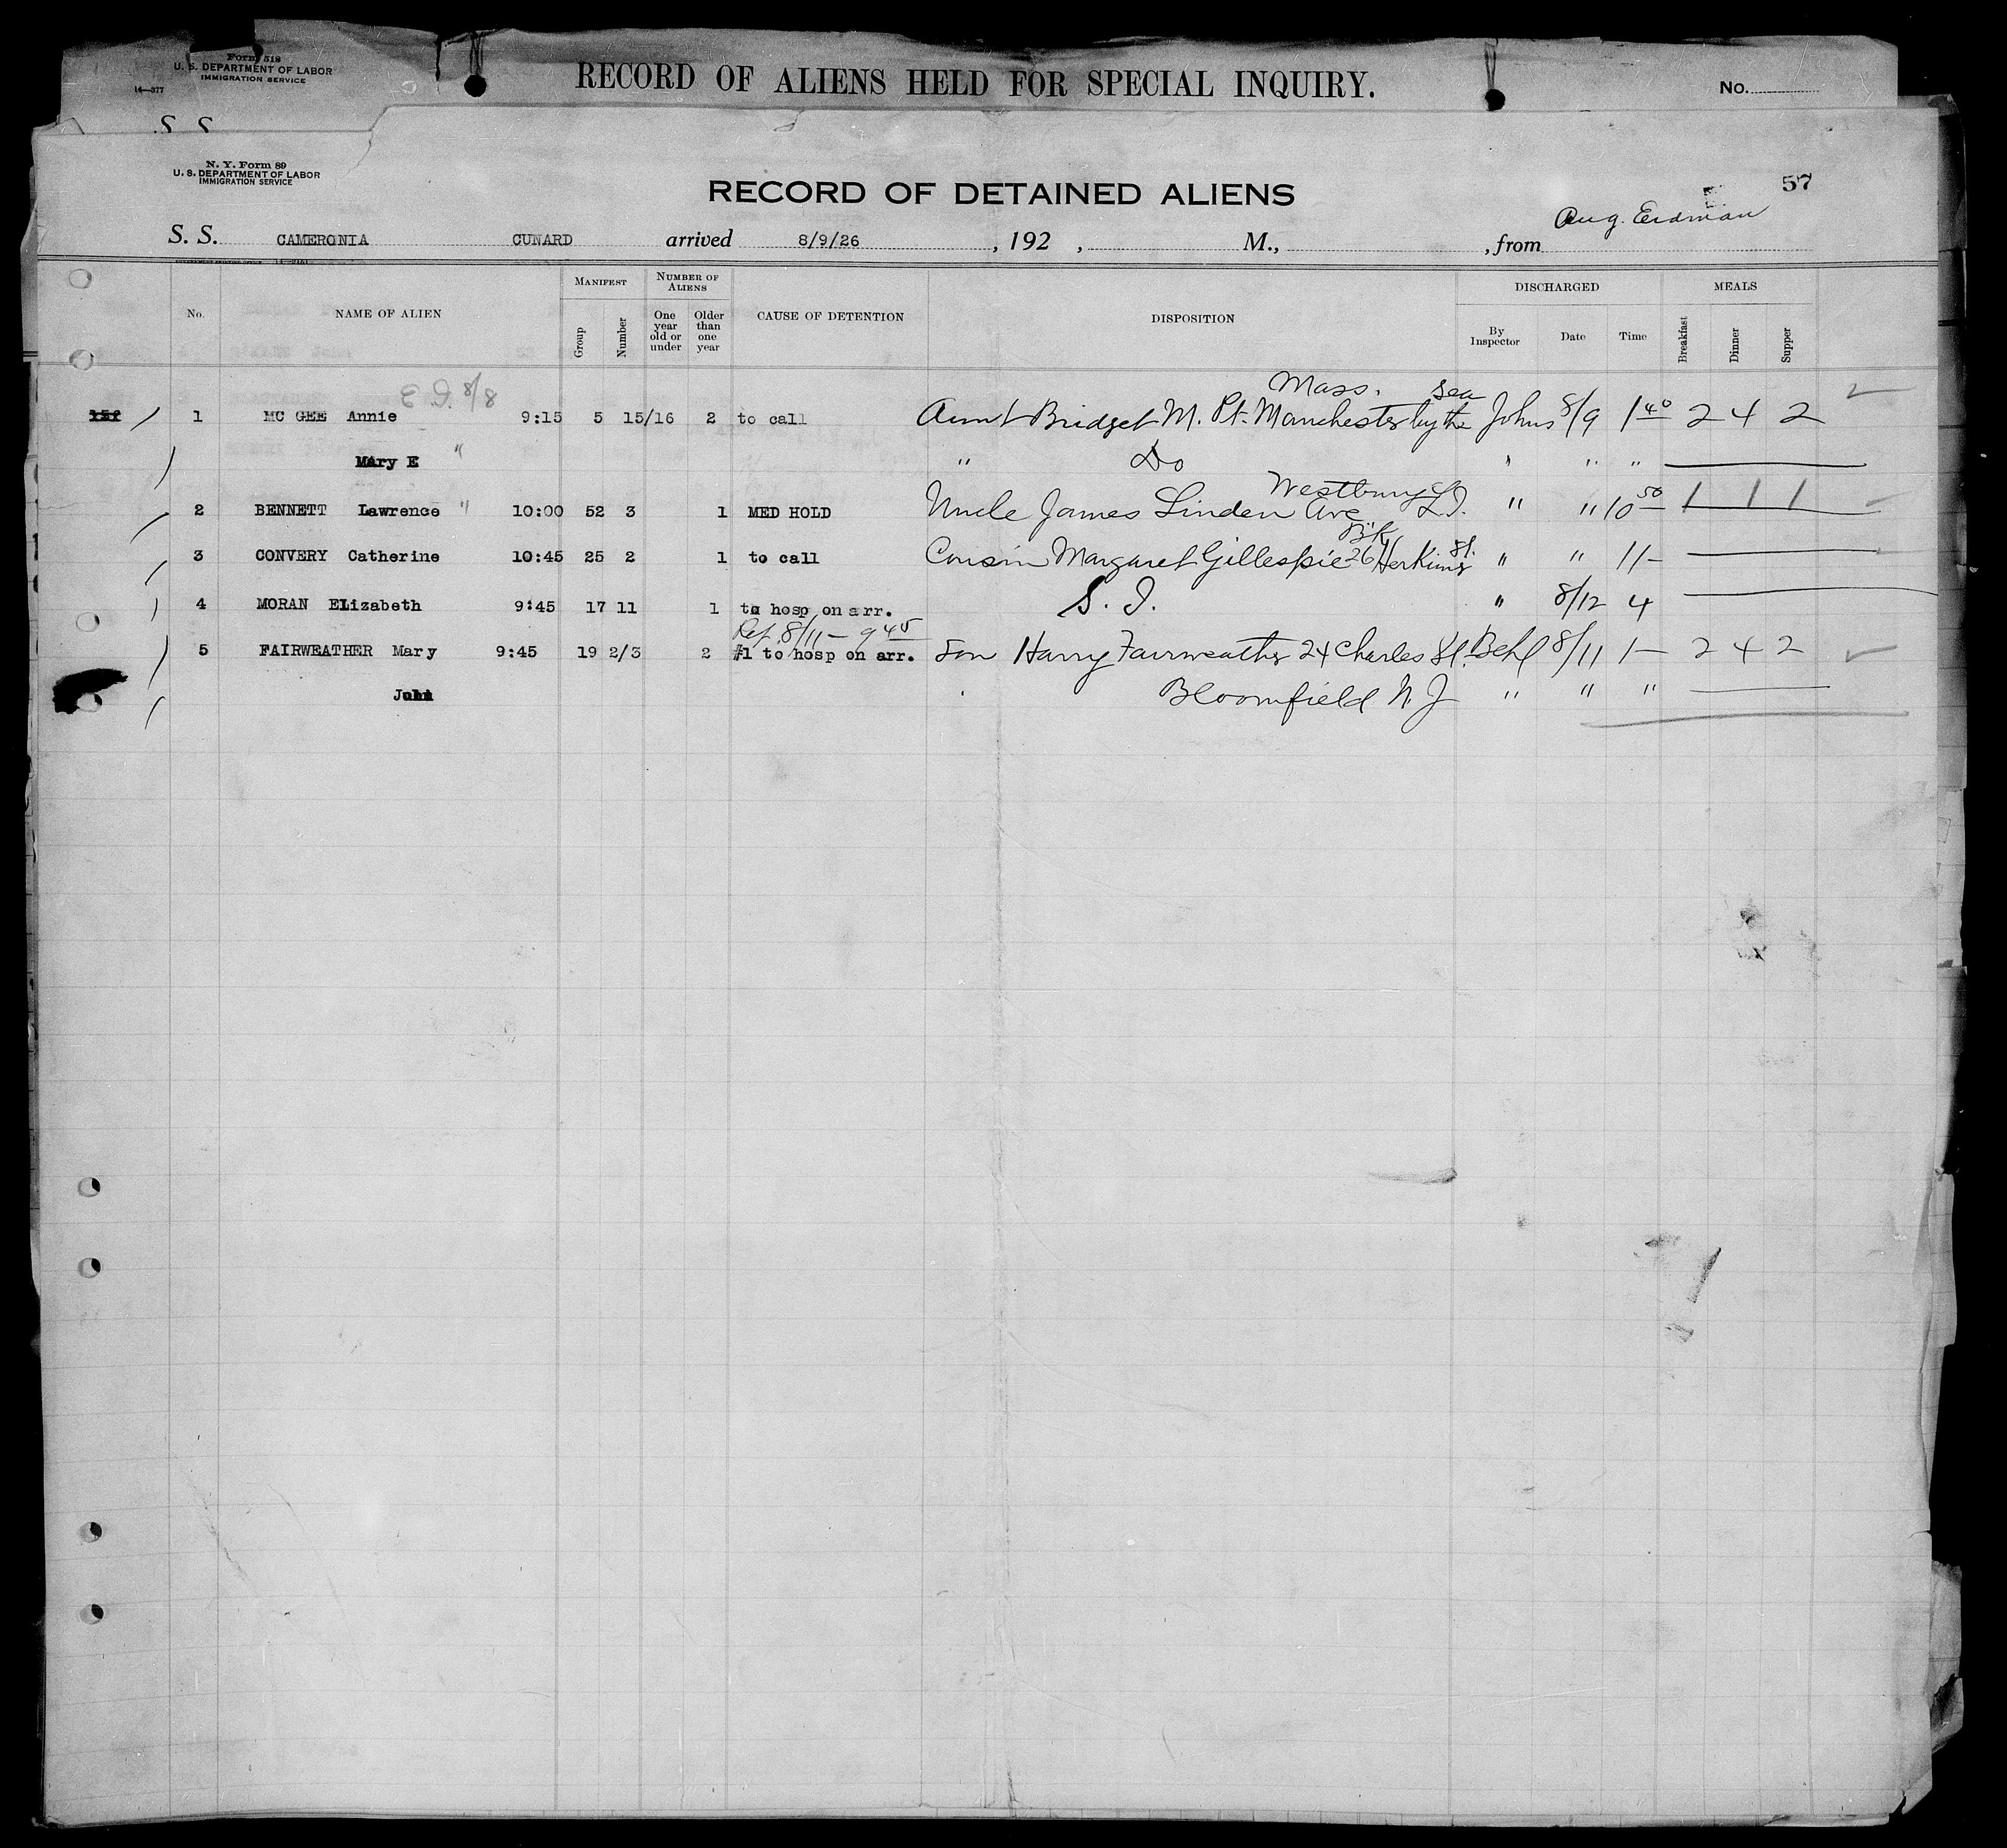 Form 518
U. S. DEPARTMENT OF LABOR
IMMIGRATION SERVICE
14—377
RECORD OF ALIENS HELD FOR SPECIAL INQUIRY.
No.
S. S.
N. Y. Form 89
U. S. DEPARTMENT OF LABOR
IMMIGRATION SERVICE
RECORD OF DETAINED ALIENS
57
S. S. CAMERONIA CUNARD arrived 8/9/26, 192 , M., , from Aug. Erdman
No. NAME OF ALIEN MANIFEST NUMBER OF ALIENS CAUSE OF DETENTION DISPOSITION DISCHARGED MEALS
Group Number One year old or under Older than one year By Inspector Date Time Breakfast Dinner Supper
E I. 8/8
Mass. Sea
1 MC GEE Annie 9:15 5 15/16 2 to call Aunt Bridget M. Pt. Manchester by the Johns 8/9 1 40 2 4 2
Mary E " " Do " " "
Westbury
2 BENNETT Lawrence " 10:00 52 3 1 MED HOLD Uncle James Linden Ave L I. " " 10 50 1 1 1
Bk
3 CONVERY Catherine 10:45 25 2 1 to call Cousin Margaret Gillespie 26 Herkimer St. " " 11 —
4 MORAN Elizabeth 9:45 17 11 1 to hosp on arr. S. I. " 8/12 4
Ret. 8/11 — 9 45
5 FAIRWEATHER Mary 9:45 19 2/3 2 #1 to hosp on arr. Son Harry Fairweather 24 Charles St. Behl 8/11 1 — 2 4 2
John Bloomfield N. J " " "